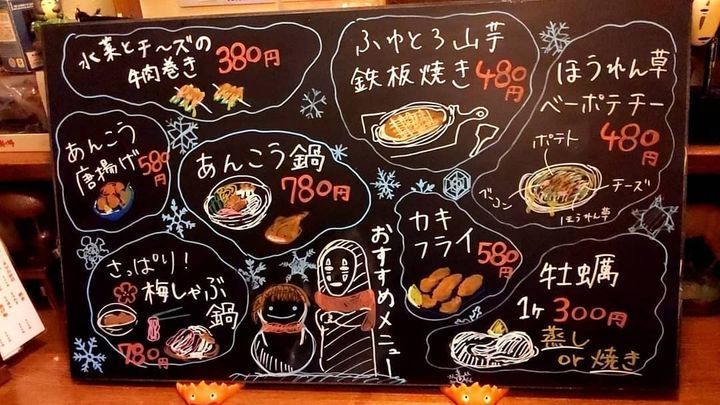 水菜とチーズの
牛肉巻き 380円
ふゆとろ山芋
鉄板焼き 480円
ほうれん草
ベーポテチー
480円
ポテト
チーズ
ベーコン
ほうれん草
あんこう
唐揚げ 580円
あんこう鍋
780円
カキ
フライ 580円
さっぱり!
梅しゃぶ
鍋
780円
おすすめメニュー
牡蠣
1ヶ 300円
蒸し
or 焼き